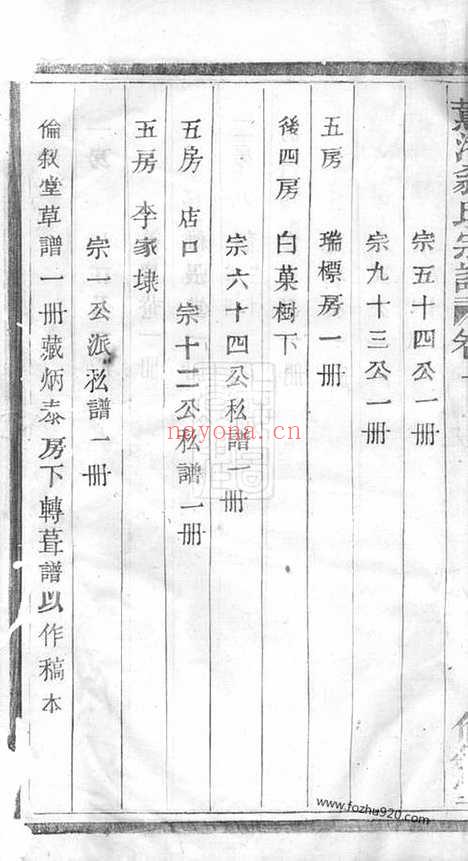 氏宗譜
宗五十四公一冊
宗九十三公一冊
五房 瑞標房一冊
後四房 白菓樹下
宗六十四公私譜一冊
五房 店口 宗十二公私譜一冊
五房 李家埭
宗一公派私譜一冊
倫敘堂草譜一冊藏炳泰房下轉葺譜以作稿本
nayona.cn
www.fozhu920.com